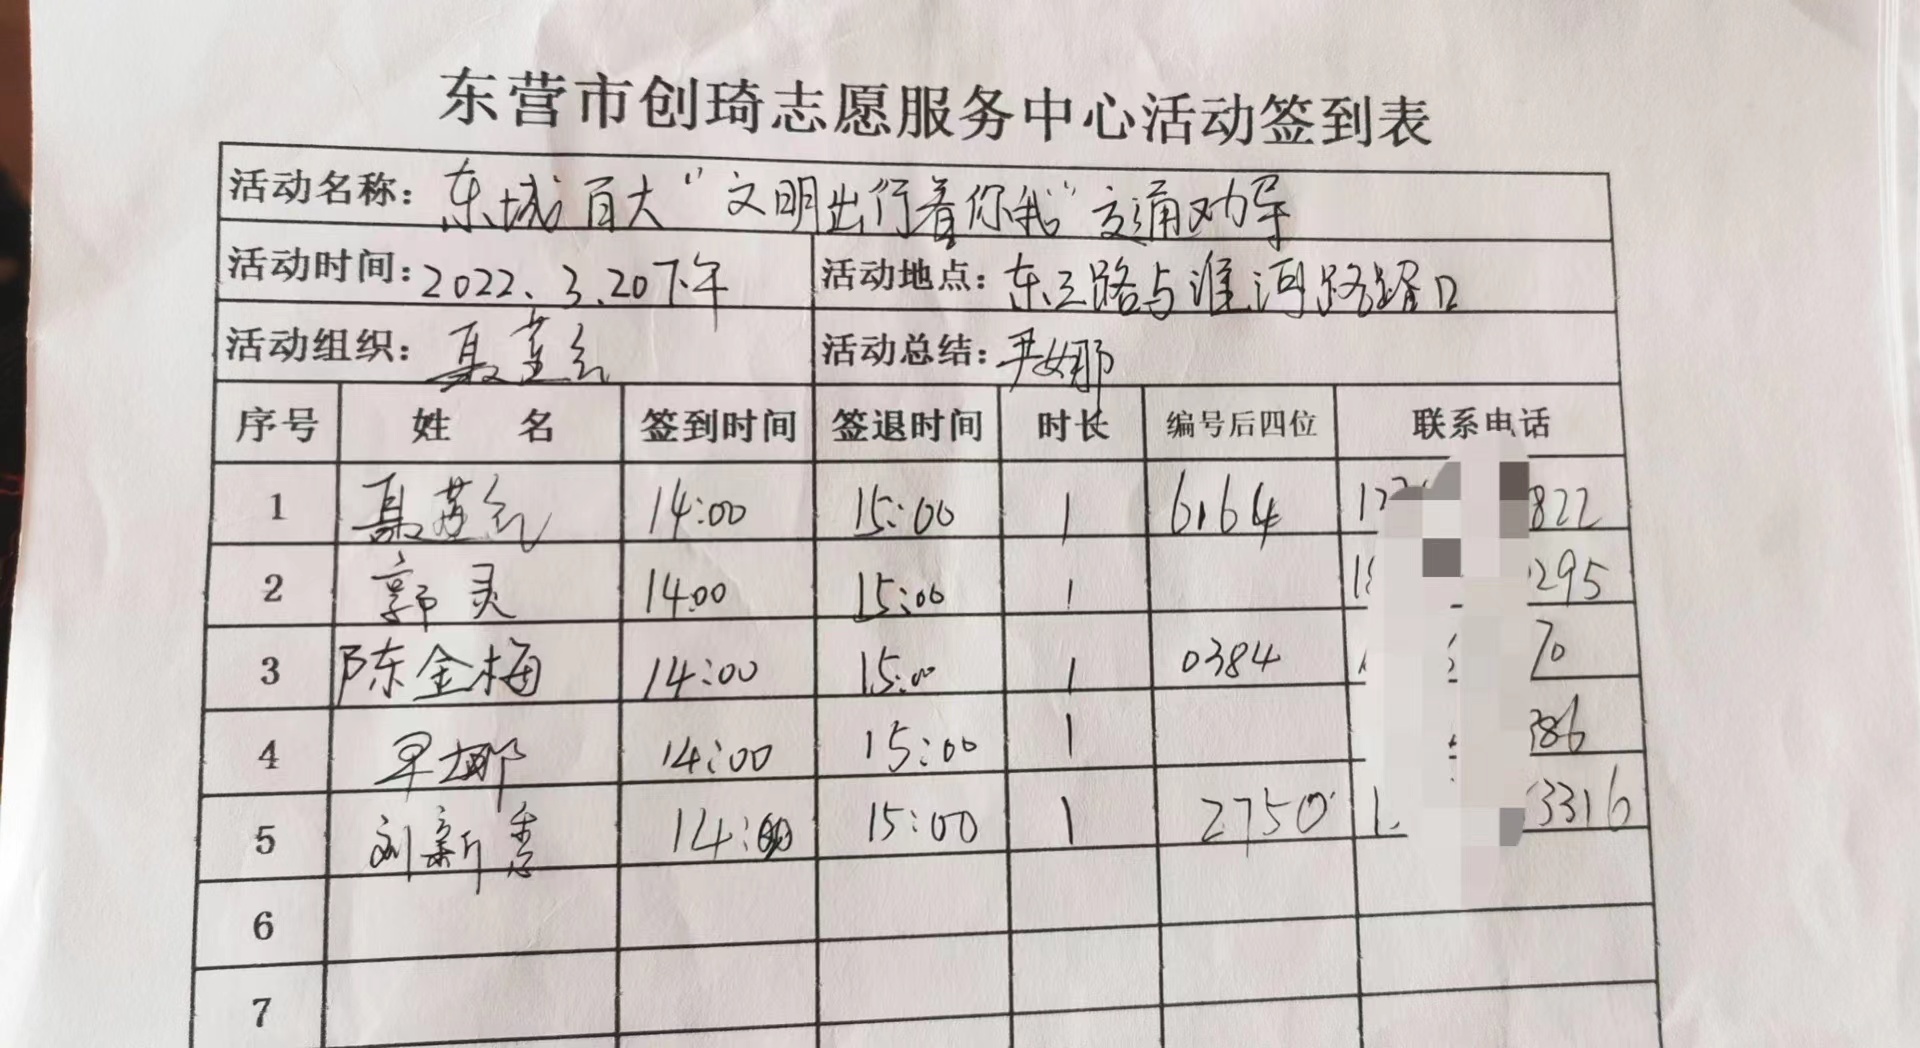 东营市创琦志愿服务中心活动签到表
活动名称：东城百大“文明出行看你我”交通劝导
活动时间：2022.3.20下午 活动地点：东三路与淮河路路口
活动组织： 活动总结：尹娜
序号 姓名 签到时间 签退时间 时长 编号后四位 联系电话
1 14:00 15:00 1 6164 822
2 郭灵 14:00 15:00 1 295
3 陈金梅 14:00 15:00 1 0384 70
4 尹娜 14:00 15:00 1 386
5 刘新 14:00 15:00 1 2750 3316
6
7